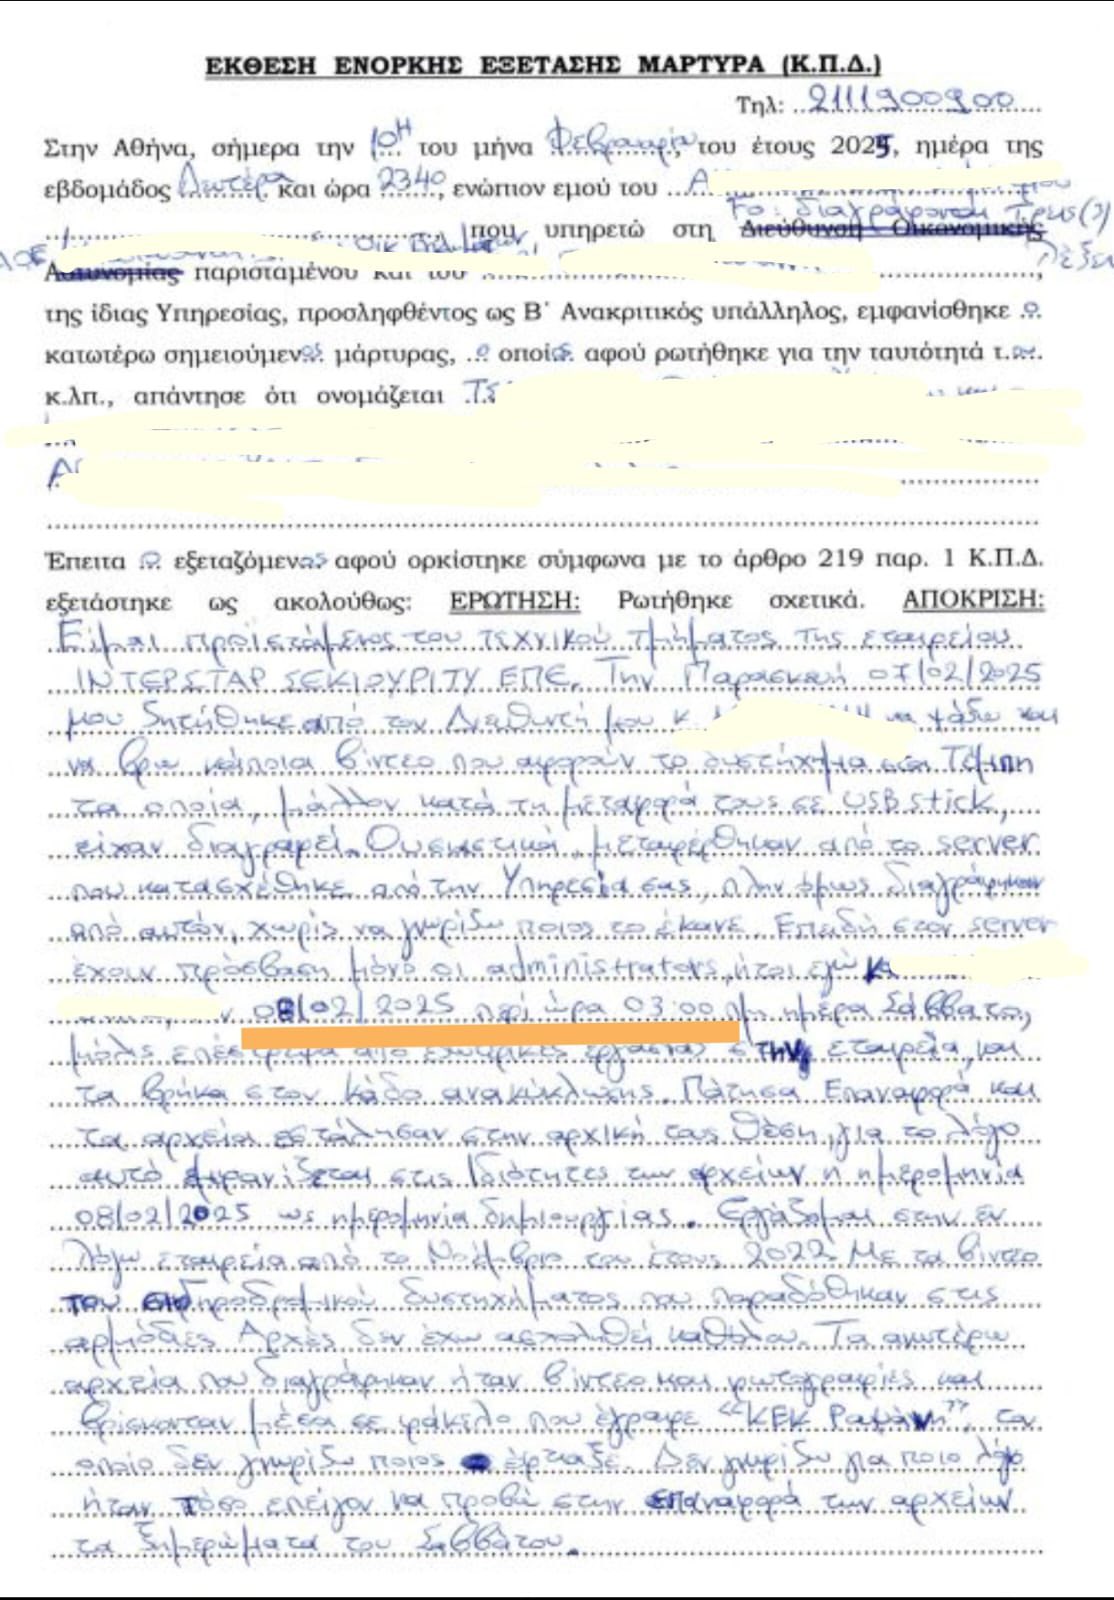 ΕΚΘΕΣΗ ΕΝΟΡΚΗΣ ΕΞΕΤΑΣΗΣ ΜΑΡΤΥΡΑ (Κ.Π.Δ.)
Τηλ: 2111900900
Στην Αθήνα, σήμερα την 10Η του μήνα Φεβρουαρίου, του έτους 2025, ημέρα της
εβδομάδος Δευτέρα και ώρα 2340, ενώπιον εμού του Α
Το: διαγράφονται Τρεις (3)
που υπηρετώ στη Διεύθυνση Οικονομικής
λέξεις
Αστυνομίας παρισταμένου και του
της ίδιας Υπηρεσίας, προσληφθέντος ως Β΄ Ανακριτικός υπάλληλος, εμφανίσθηκε ο
κατωτέρω σημειούμενος μάρτυρας, ο οποίος αφού ρωτήθηκε για την ταυτότητά του
κ.λπ., απάντησε ότι ονομάζεται ΤΣ
Έπειτα ο εξεταζόμενος αφού ορκίστηκε σύμφωνα με το άρθρο 219 παρ. 1 Κ.Π.Δ.
εξετάστηκε ως ακολούθως: ΕΡΩΤΗΣΗ: Ρωτήθηκε σχετικά. ΑΠΟΚΡΙΣΗ:
Είμαι προϊστάμενος του τεχνικού τμήματος της εταιρείας
ΙΝΤΕΡΣΤΑΡ ΣΕΚΙΟΥΡΙΤΥ ΕΠΕ. Την Παρασκευή 07/02/2025
μου ζητήθηκε από τον Διευθυντή μου κ. να ψάξω και
να βρω κάποια βίντεο που αφορούν το δυστύχημα στα Τέμπη
τα οποία, μάλλον κατά τη μεταφορά τους σε USB stick,
είχαν διαγραφεί. Ουσιαστικά, μεταφέρθηκαν από το server
που κατασχέθηκε από την Υπηρεσία σας, πλην όμως διαγράφηκαν
από αυτόν, χωρίς να γνωρίζω ποιος το έκανε. Επειδή στον server
έχουν πρόσβαση μόνο οι administrators, ήτοι εγώ κ
08/02/2025 περί ώρα 03:00 πμ ημέρα Σάββατο,
μόλις επέστρεψα από εξωτερικές εργασίες στην εταιρεία, και
τα βρήκα στον κάδο ανακύκλωσης. Πάτησα Επαναφορά και
τα αρχεία εστάλησαν στην αρχική τους θέση, για το λόγο
αυτό εμφανίζεται στις Ιδιότητες των αρχείων η ημερομηνία
08/02/2025 ως ημερομηνία δημιουργίας. Εργάζομαι στην εν
λόγω εταιρεία από το Νοέμβριο του έτους 2022. Με τα βίντεο
του σιδηροδρομικού δυστυχήματος που παραδόθηκαν στις
αρμόδιες Αρχές δεν έχω ασχοληθεί καθόλου. Τα ανωτέρω
αρχεία που διαγράφηκαν ήταν βίντεο και φωτογραφίες και
βρίσκονταν μέσα σε φάκελο που έγραφε “ΚΕΚ Ραψάνη”, τον
οποίο δεν γνωρίζω ποιος έφτιαξε. Δεν γνωρίζω για ποιο λόγο
ήταν τόσο επείγον να προβώ στην επαναφορά των αρχείων
τα ξημερώματα του Σαββάτου.